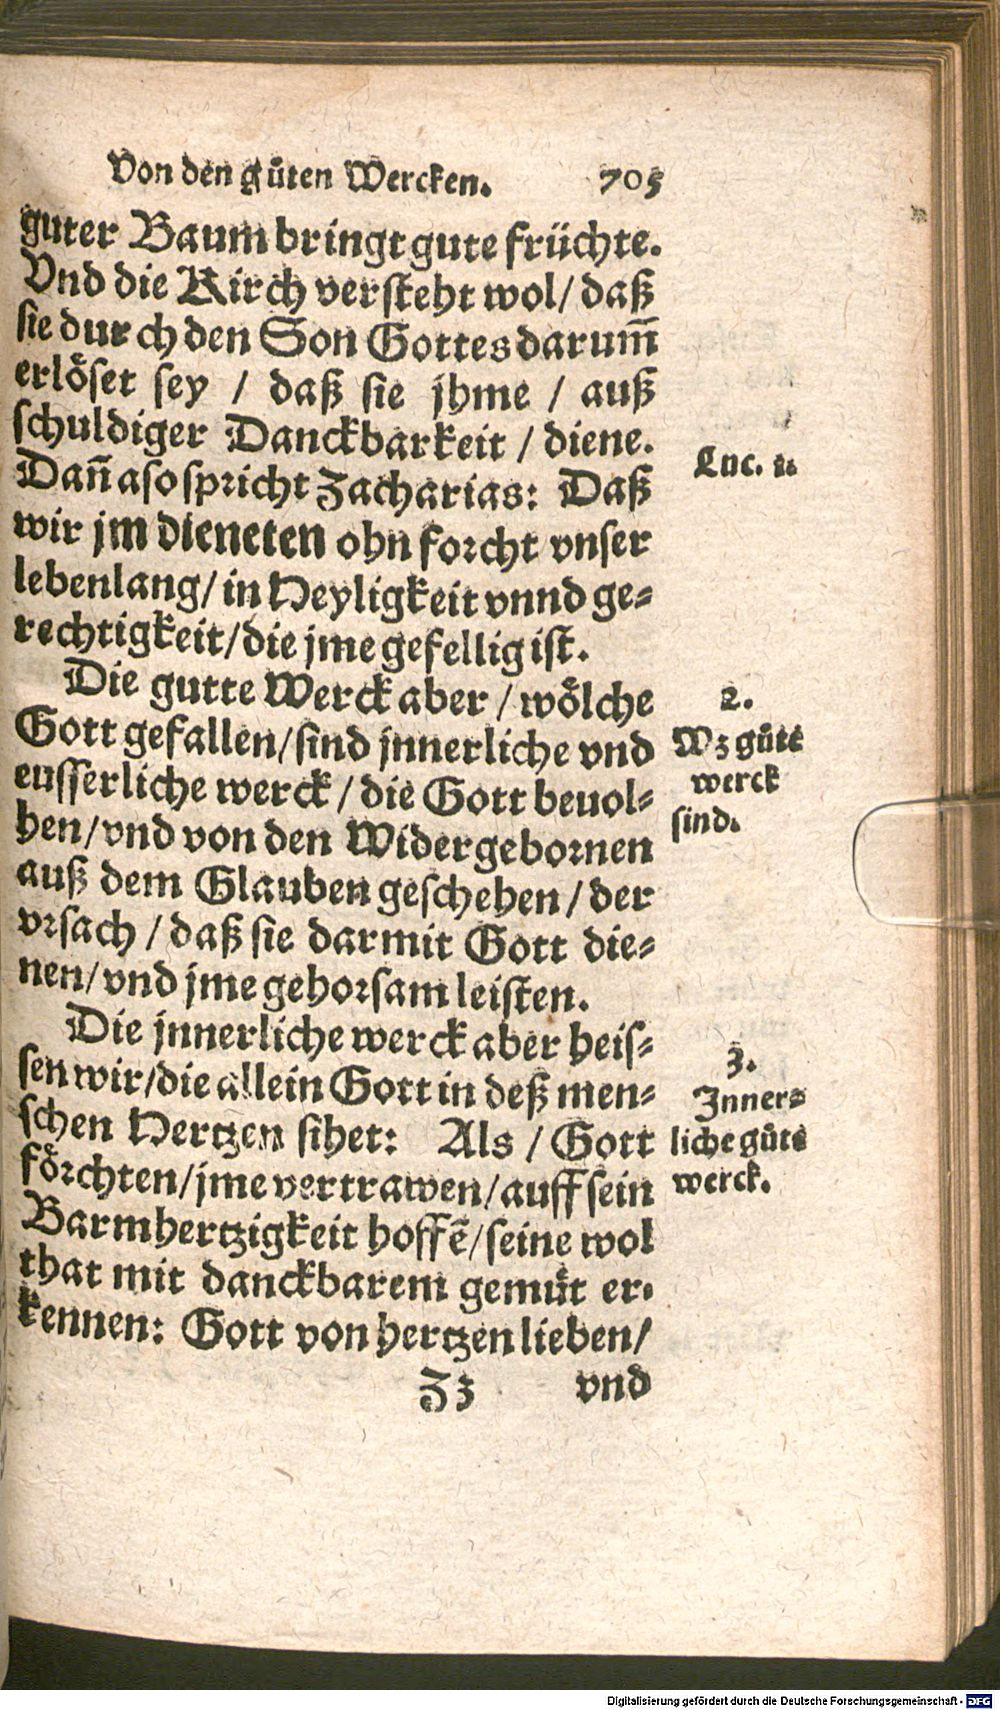 Von den gůten Wercken. 705
guter Baum bringt gute früchte.
Vnd die Kirch versteht wol/ daß
sie durch den Son Gottes darum̃
erlöset sey / daß sie jhme / auß
schuldiger Danckbarkeit / diene.
Dañ aso spricht Zacharias: Daß
wir jm dieneten ohn forcht vnser
lebenlang/ in Heyligkeit vnnd ge-
rechtigkeit/die jme gefellig ist.
Luc. 1.
Die gutte Werck aber / wölche
Gott gefallen/sind jnnerliche vnd
eusserliche werck / die Gott beuol-
hen/vnd von den Widergebornen
auß dem Glauben geschehen / der
vrsach / daß sie darmit Gott die-
nen/vnd jme gehorsam leisten.
2.
Wz gůte
werck
sind.
Die jnnerliche werck aber heis-
sen wir/die allein Gott in deß men-
schen Hertzen sihet: Als / Gott
förchten/jme vertrawen/auff sein
Barmhertzigkeit hoffẽ/seine wol
that mit danckbarem gemůt er-
kennen: Gott von hertzen lieben/
3.
Inner-
liche gůte
werck.
Zz vnd
Digitalisierung gefördert durch die Deutsche Forschungsgemeinschaft - DFG